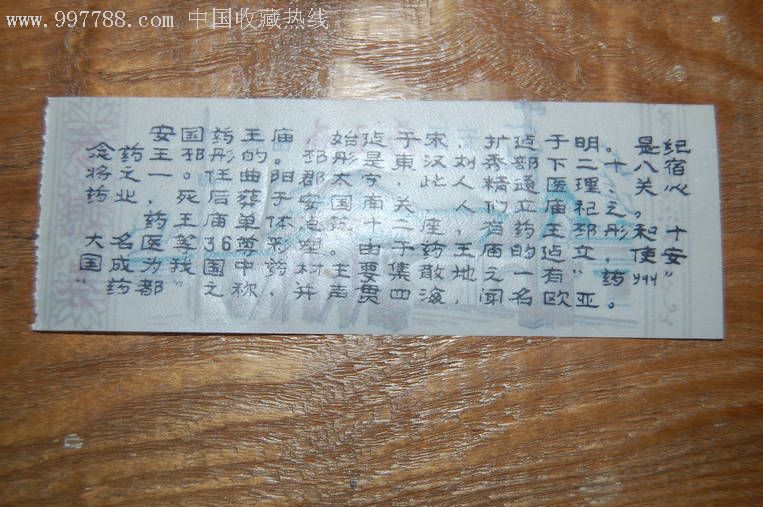 www.997788.com 中国收藏热线
安国药王庙始建于宋，扩建于明。是纪
念药王邳彤的。邳彤是東汉刘秀部下二十八宿
将之一。任曲阳郡太守，此人精通医理、关心
药业，死后葬于安国南关。人们立庙祀之。
药王庙单体建筑十二座，有药王邳彤和十
大名医等36尊彩塑。由于药王庙的建立，使安
国成为我国中药材主要集散地之一有"药州"
"药都"之称，并声贯四海，闻名欧亚。